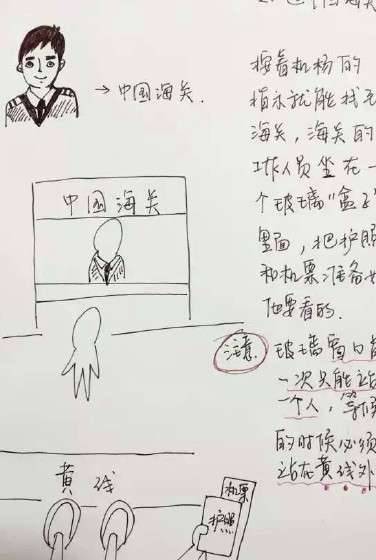 2.
海关
→中国海关.
按着机场的
指示就能找
海关，海关的
工作人员坐在一
个玻璃“盒子”
里面，把护照
和机票准备
他要看的.
中国海关
注意
玻璃窗口
一次只能站
一个人，等候
的时候必须
站在黄线外
黄线
机票
护照